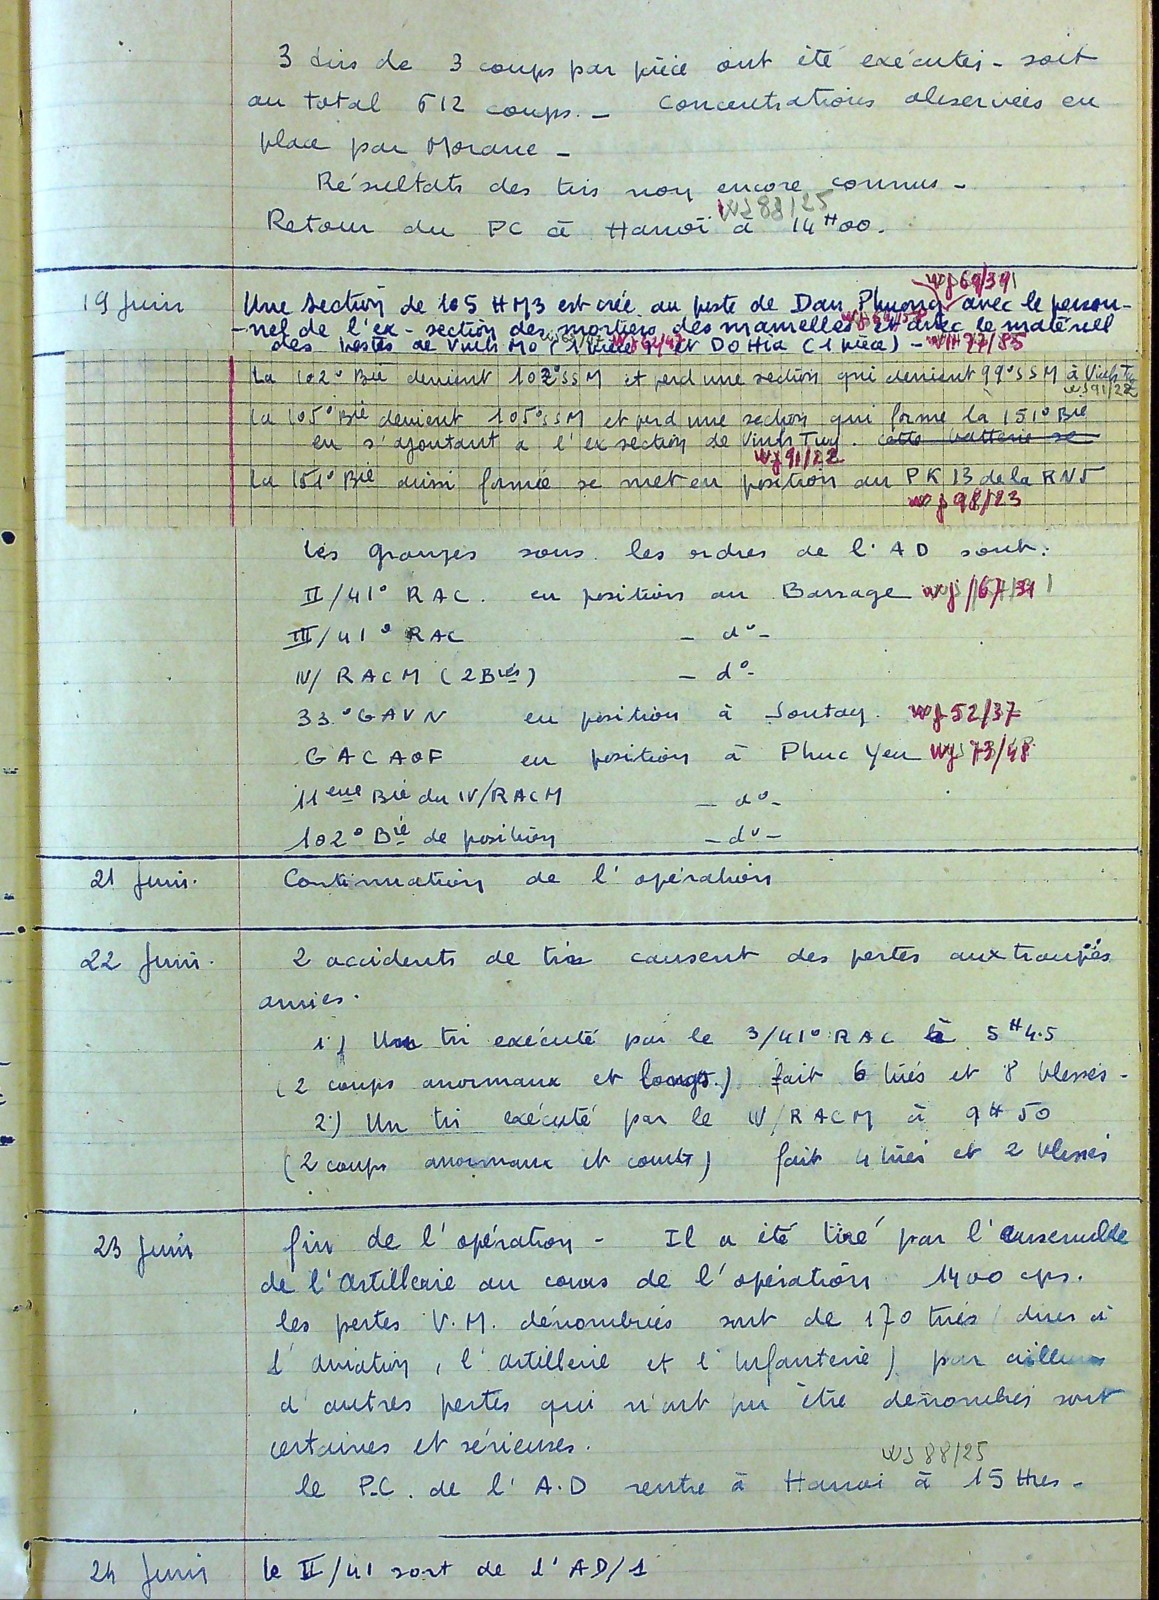 3 tirs de 3 coups par pièce ont été exécutés - soit
au total 612 coups. - Concentrations observées en
place par Morane -
Résultats des tirs non encore connus -
WJ 88/25
Retour du PC à Hanoï à 14H00.
WJ 69/39
19 Juin Une Section de 105 HM3 est créée au poste de Dan Phuong avec le person-
-nel de l'ex-section des mortiers des mamelles et avec le matériel
des postes de Vinh Mo (1 pièce) et Do Hia (1 pièce) - WH 77/85
La 102° Bie devient 102°SSM et perd une section qui devient 99°SSM à Vinh Tuy
WJ 91/22
La 105° Bie devient 105°SSM et perd une section qui forme la 151° Bie
en s'ajoutant à l'ex section de Vinh Tuy. cette batterie se
WJ 91/22
La 151° Bie ainsi formée se met en position au PK 13 de la RN5
WJ 98/23
Les groupes sous les ordres de l'AD sont:
II/41° RAC. en position au Barrage WJ/67/31
III/41° RAC - d° -
IV/RACM (2 Bies) - d° -
33.° GAVN en position à Sontay. WJ 52/37
GACAOF en position à Phuc Yen WJ 73/48
11eme Bie du IV/RACM - d° -
102° Bie de position - d° -
21 Juin. Continuation de l'opération
22 Juin. 2 accidents de tir causent des pertes aux troupes
amies.
1) Un tir exécuté par le 3/41° RAC à 5H45
(2 coups anormaux et longs.) fait 6 tués et 8 blessés -
2) Un tir exécuté par le IV/RACM à 9H50
(2 coups anormaux et courts) fait 4 tués et 2 blessés
23 Juin fin de l'opération - Il a été tiré par l'ensemble
de l'Artillerie au cours de l'opération 1400 cps.
les pertes V.M. dénombrées sont de 170 tués (dues à
l'aviation, l'artillerie et l'Infanterie) par ailleurs
d'autres pertes qui n'ont pu être dénombrés sont
certaines et sérieuses.
WJ 88/25
le P.C. de l'A.D rentre à Hanoi à 15 Hres -
24 Juin le II/41 sort de l'AD/1